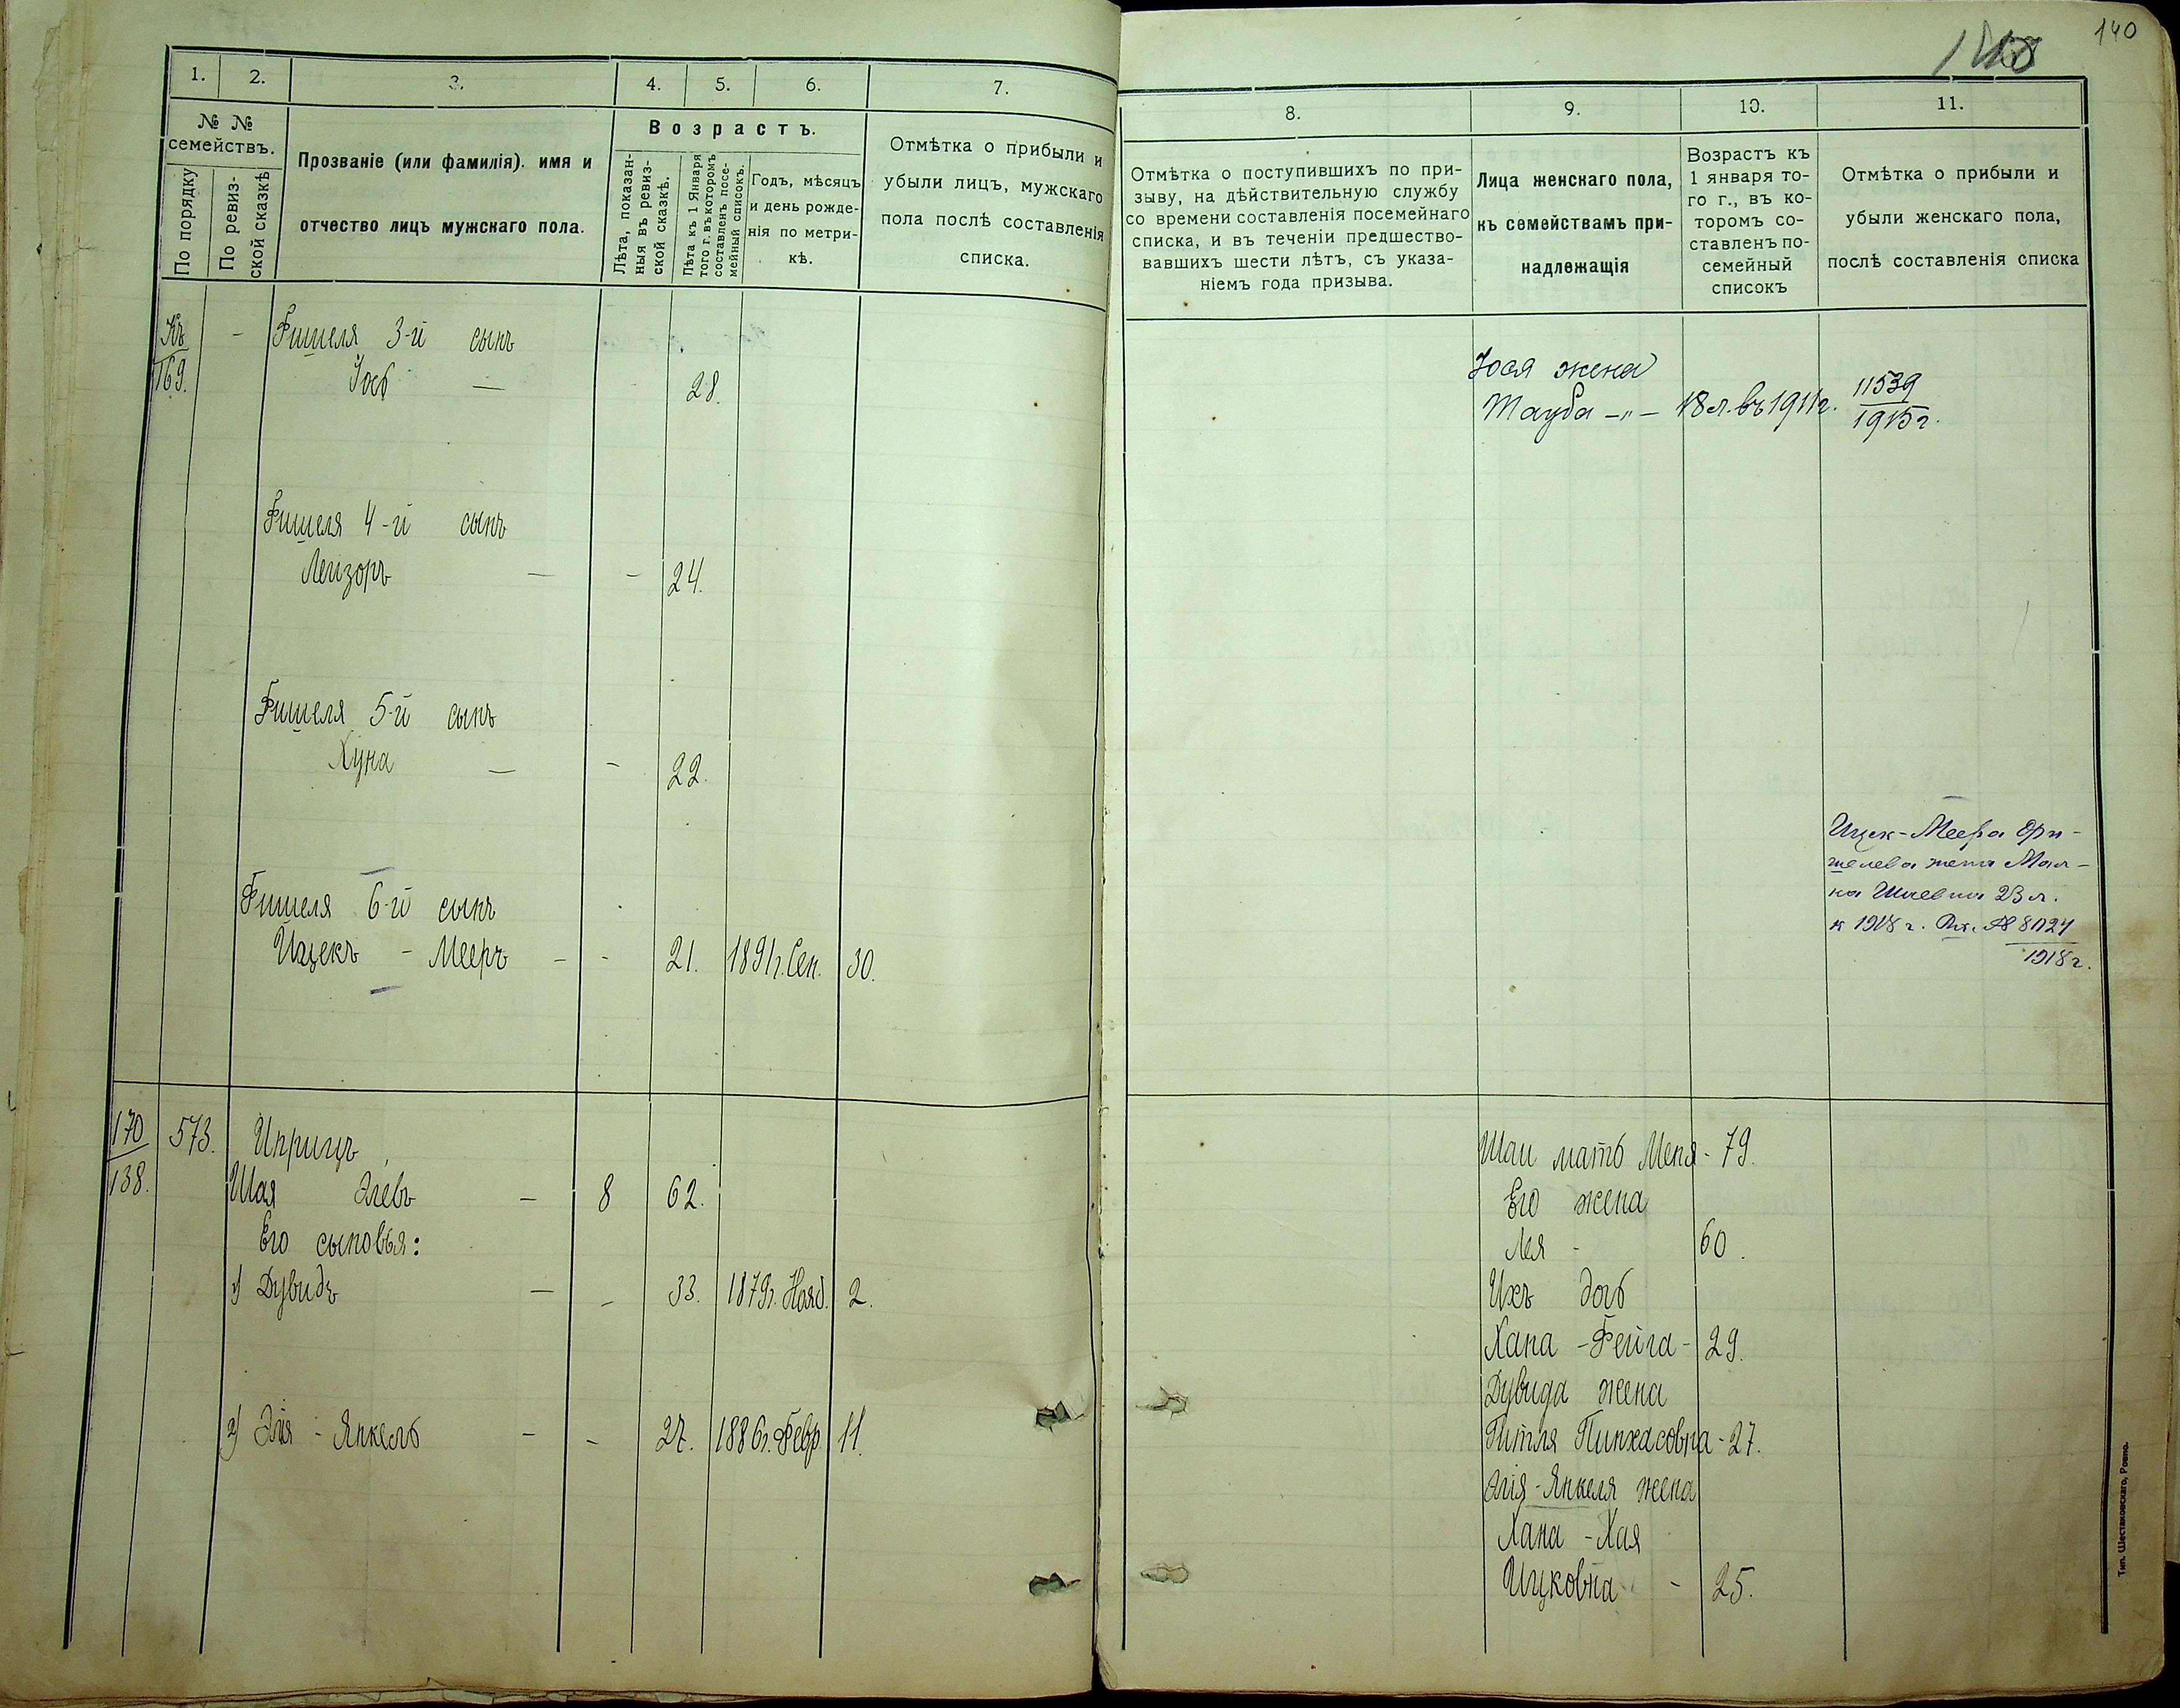 140
1. 2. 3. 4. 5. 6. 7.
№ № семействъ.
По порядку
По ревизской сказкѣ
Прозваніе (или фамилія). имя и
отчество лицъ мужскаго пола.
Возрастъ.
Лѣта, показан-
ныя въ ревиз-
ской сказкѣ.
Лѣта къ 1 Января
того г. въ которомъ
составленъ посе-
мейный списокъ.
Годъ, мѣсяцъ
и день рожде-
нія по метри-
кѣ.
Отмѣтка о прибыли и
убыли лицъ, мужскаго
пола послѣ составленія
списка.
Къ - Фишеля 3-й сынъ
169. Іось — 28.
Фишеля 4-й сынъ
Лейзоръ — - 24.
Фишеля 5-й сынъ
Хуна — - 22.
Фишеля 6-й сынъ
Ицекъ - Мееръ - - 21. 1891г. Сен. 30.
170 573. Ицрицъ
138. Шая Элевъ — 8 62.
Его сыновья:
1) Дувидъ — - 33. 1879г. Нояб. 2.
2) Элія - Янкель - - 27. 1886г. Февр. 11.
8. 9. 10. 11.
Отмѣтка о поступившихъ по при-
зыву, на дѣйствительную службу
со времени составленія посемейнаго
списка, и въ теченіи предшество-
вавшихъ шести лѣтъ, съ указа-
ніемъ года призыва.
Лица женскаго пола,
къ семействамъ при-
надлежащія
Возрастъ къ
1 января то-
го г., въ ко-
торомъ со-
ставленъ по-
семейный
списокъ
Отмѣтка о прибыли и
убыли женскаго пола,
послѣ составленія списка
Іося жена
Тауба -"- 18 л. въ 1911г. 11539
1915г.
Ицек-Меера Фи-
шелева жена Мал-
ка Шаевна 23 л.
к 1918 г. № 8024
1918г.
Шаи мать Меня - 79.
Его жена
Лея - 60.
Ихъ дочь
Хана - Фейга - 29.
Дувида жена
Гитля Пинхасовна - 27.
Элія - Янкеля жена
Хана - Хая
Ицковна - 25.
Тип. Шестаковскаго, Ровно.